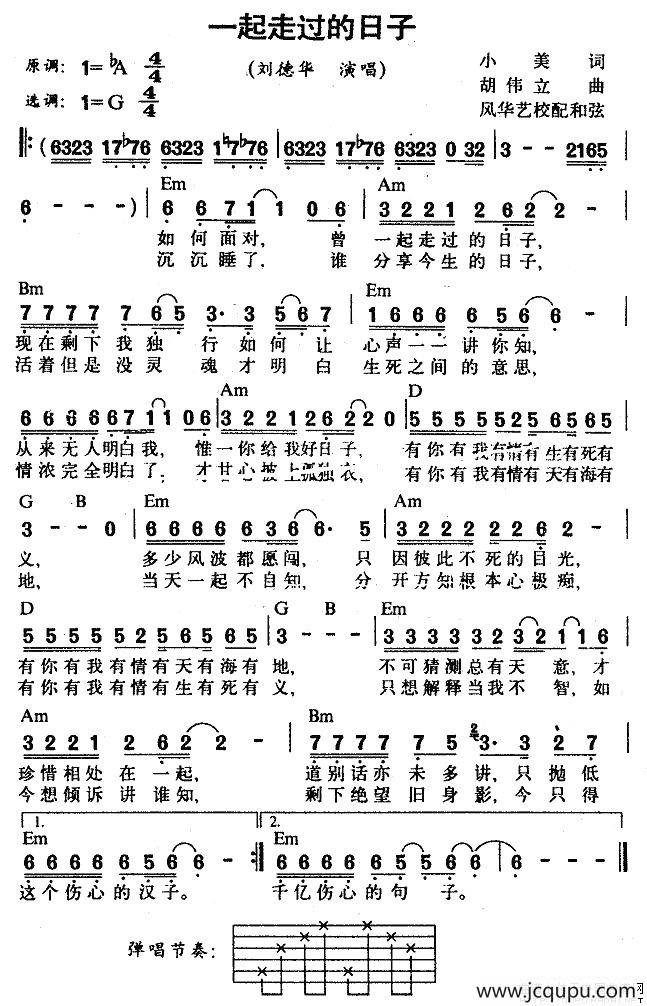 一起走过的日子
原调: 1=♭A 4/4
小美 词
(刘德华 演唱)
胡伟立 曲
选调: 1=G 4/4
风华艺校配和弦
(6323 17♭76 6323 1♮7♭76 6323 17♭76 6323 0 32 3 - - 2165
Em Am
6 - - -) 6 6 7 1 1 0 6 3 2 2 1 2 6 2 2 -
如何面对, 曾 一起走过的日子,
沉沉睡了, 谁 分享今生的日子,
Bm Em
7 7 7 7 7 6 5 3· 3 5 6 7 1 6 6 6 6 5 6 6 -
现在剩下我独 行如何让 心声一一讲你知,
活着但是没灵 魂才明白 生死之间的意思,
Am D
6 6 6 6 6 7 1 1 0 6 3 2 2 1 2 6 2 2 0 5 5 5 5 5 2 5 6 5 6 5
从来无人明白我, 惟一你给我好日子, 有你有我有情有生有死有
情浓完全明白了, 才甘心披上孤独衣, 有你有我有情有天有海有
G B Em Am
3 - - 0 6 6 6 6 6 3 6 6· 5 3 2 2 2 2 2 6 2 -
义, 多少风波都愿闯, 只 因彼此不死的目光,
地, 当天一起不自知, 分 开方知根本心极痴,
D G B Em
5 5 5 5 5 2 5 6 5 6 5 3 - - - 3 3 3 3 3 2 1 1 6
有你有我有情有天有海有 地, 不可猜测总有天 意, 才
有你有我有情有生有死有 义, 只想解释当我不 智, 如
Am Bm
3 2 2 1 2 6 2 2 - 7 7 7 7 7 5 3· 3 2 7
珍惜相处在一起, 道别话亦未多讲, 只抛低
今想倾诉讲谁知, 剩下绝望旧身影, 今只得
1. 2.
Em Em
6 6 6 6 6 5 6 6 - 6 6 6 6 6 5 5 6 6 - 6 - - -
这个伤心的汉子。 千亿伤心的句 子。
弹唱节奏:
www.jcqupu.com